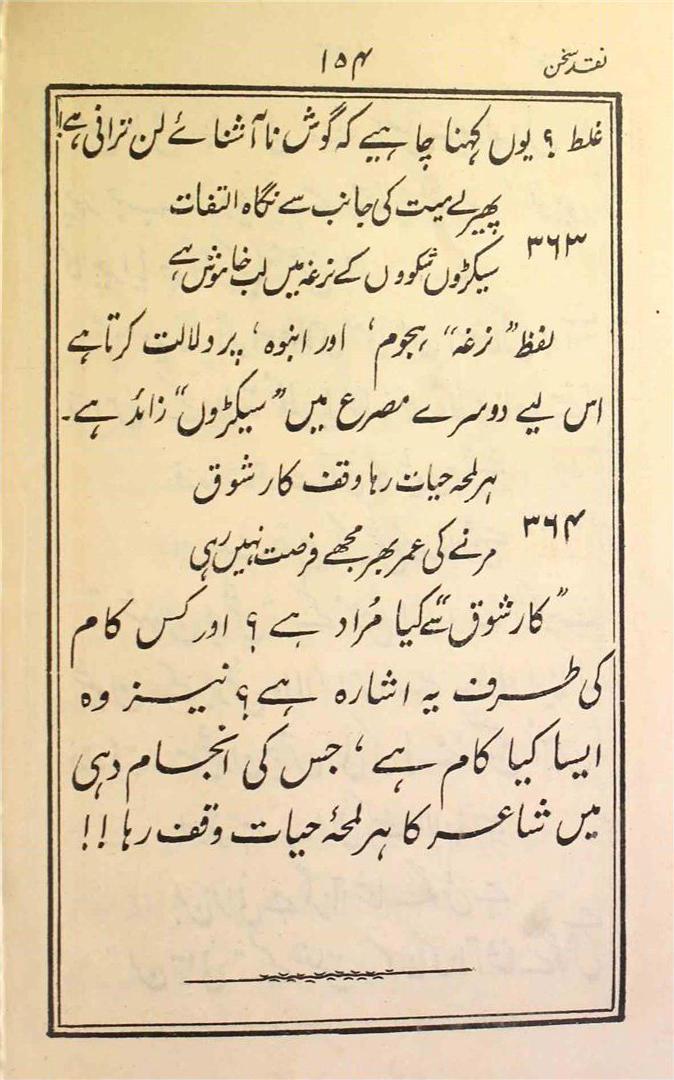 نقد سخن
۱۵۴
غلط ؟ یوں کہنا چاہیے کہ گوش ناآشنائے لن ترانی ہے!
پھیر لے میت کی جانب سے نگاہ التفات
۳۶۳
سیکڑوں شکووں کے نرغہ میں لب خاموش ہے
لفظ ”نرغہ“ ’ہجوم‘ اور انبوہ‘ پر دلالت کرتا ہے
اس لیے دوسرے مصرع میں ”سیکڑوں“ زائد ہے۔
ہر لمحہ حیات رہا وقف کار شوق
۳۶۴
مرنے کی عمر بھر مجھے فرصت نہیں رہی
”کار شوق“ سے کیا مُراد ہے ؟ اور کس کام
کی طرف یہ اشارہ ہے ؟ نیز وہ
ایسا کیا کام ہے ، جس کی انجام دہی
میں شاعر کا ہر لمحۂ حیات وقف رہا !!